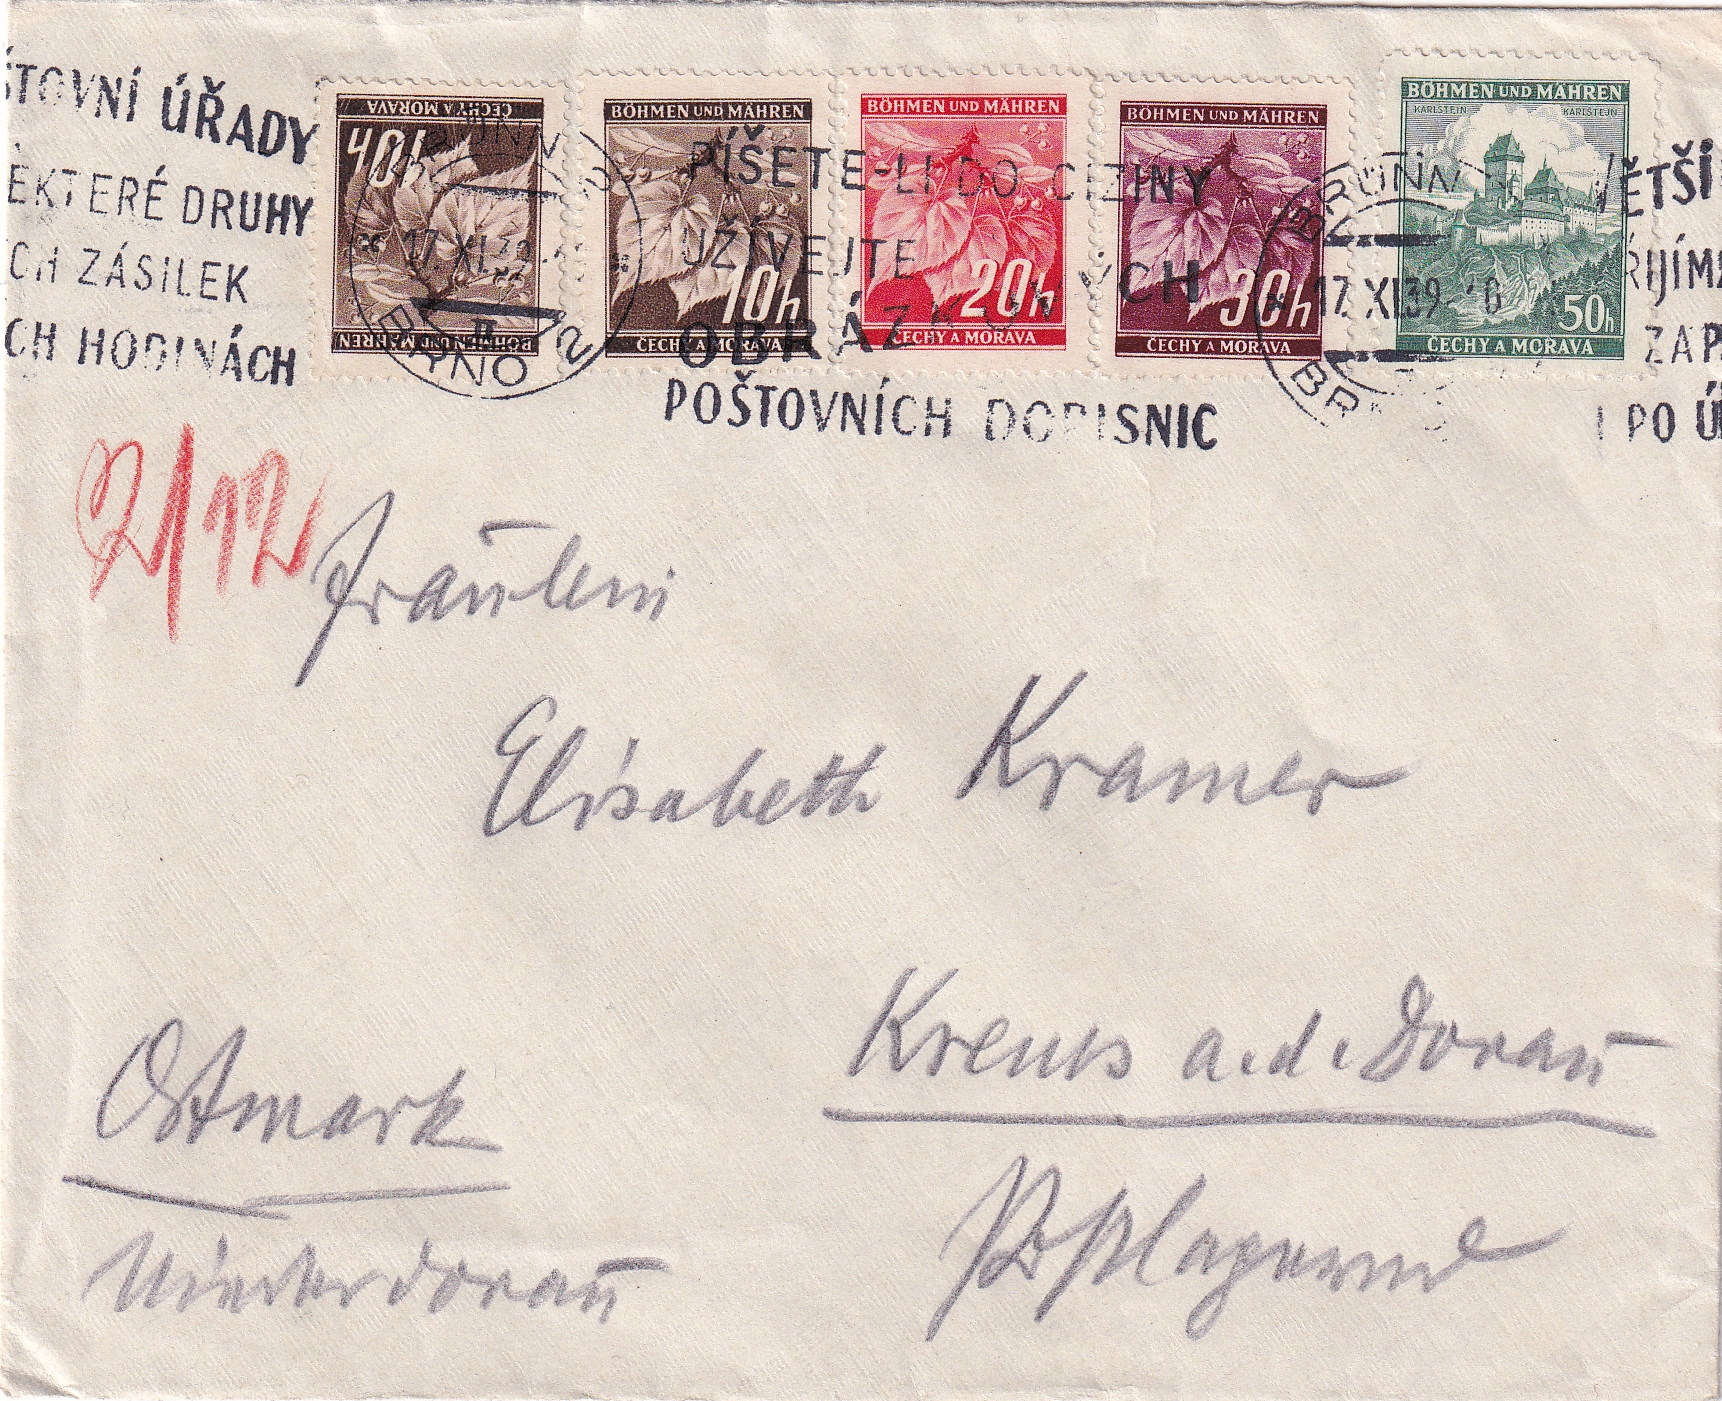 ŠTOVNÍ ÚŘADY
ĚKTERÉ DRUHY
CH ZÁSILEK
CH HODINÁCH
ČECHY A MORAVA
10h
BÖHMEN UND MÄHREN
BRÜNN 2
17.XI.39
BRNO 2
BÖHMEN UND MÄHREN
10h
ČECHY A MORAVA
BÖHMEN UND MÄHREN
20h
ČECHY A MORAVA
BÖHMEN UND MÄHREN
30h
ČECHY A MORAVA
BÖHMEN UND MÄHREN
KARLSTEIN KARLŠTEJN
50h
ČECHY A MORAVA
PÍŠETE-LI DO CIZINY
UŽÍVEJTE
OBRÁZKOVÝCH
POŠTOVNÍCH DOPISNIC
BRÜNN
17.XI.39
VĚTŠÍ
ŘIJÍM
ZAP
I PO Ú
2/12
Fräulein
Elisabeth Kramer
Krems a. d. Donau
Postlagernd
Ostmark
Niederdonau